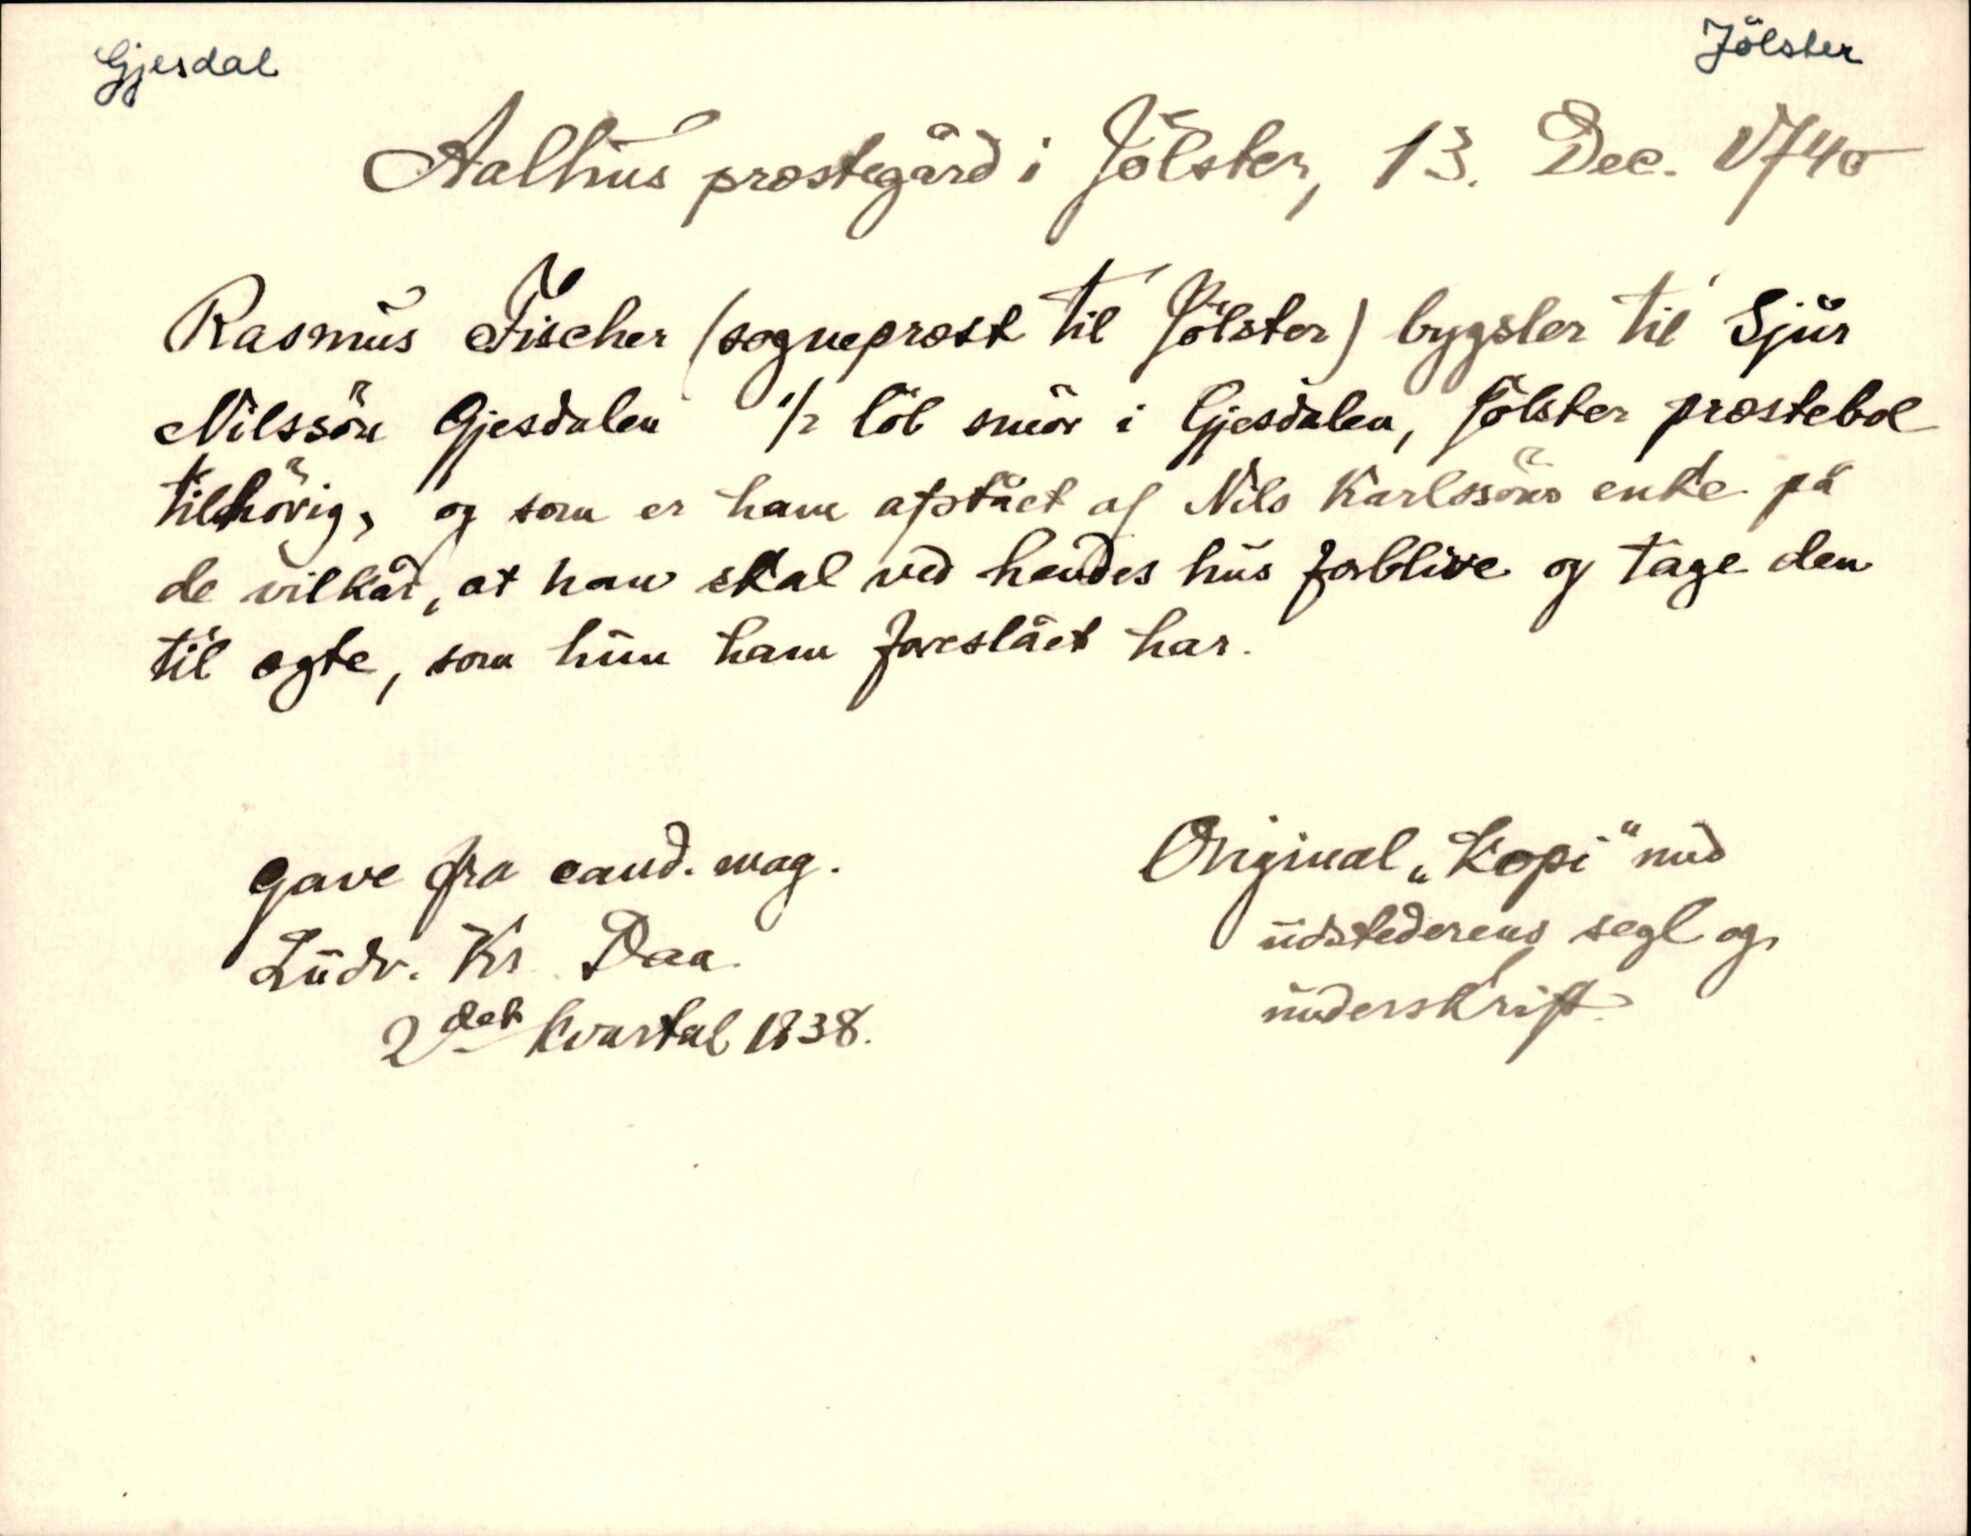 Gjesdal
Jölster
Aalhus præstegård i Jölster, 13. Dec. 1740
Rasmus Fischer (sognepræst til Jölster) bygsler til Sjur
Nilssön Gjesdalen 1/2 löb smör i Gjesdalen, Jölster præstebol
tilhörig, og som er ham afstået af Nils Karlssöns enke på
de vilkår, at han skal ved hendes hus forblive og tage den
til ægte, som hun ham foreslået har.
Gave fra cand. mag.
Ludv. Kr. Daa
2det kvartal 1838.
Original „Kopi“ med
udstederens segl og
underskrift.